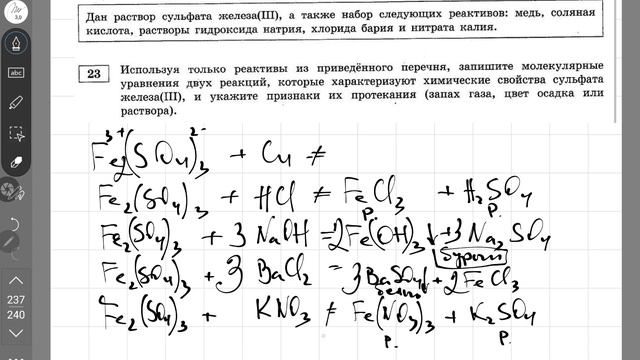 Дан раствор сульфата железа(III), а также набор следующих реактивов: медь, соляная
кислота, растворы гидроксида натрия, хлорида бария и нитрата калия.
23 Используя только реактивы из приведённого перечня, запишите молекулярные
уравнения двух реакций, которые характеризуют химические свойства сульфата
железа(III), и укажите признаки их протекания (запах газа, цвет осадка или
раствора).
3+ 2-
Fe2(SO4)3 + Cu ≠
Fe2(SO4)3 + HCl ≠ FeCl3 + H2SO4
р. р.
Fe2(SO4)3 + 3 NaOH = 2Fe(OH)3 ↓ + 3 Na2SO4
бурый
Fe2(SO4)3 + 3 BaCl2 = 3BaSO4↓ + 2FeCl3
белый
Fe2(SO4)3 + KNO3 ≠ Fe(NO3)3 + K2SO4
р. р.
abc
3,0
237
240